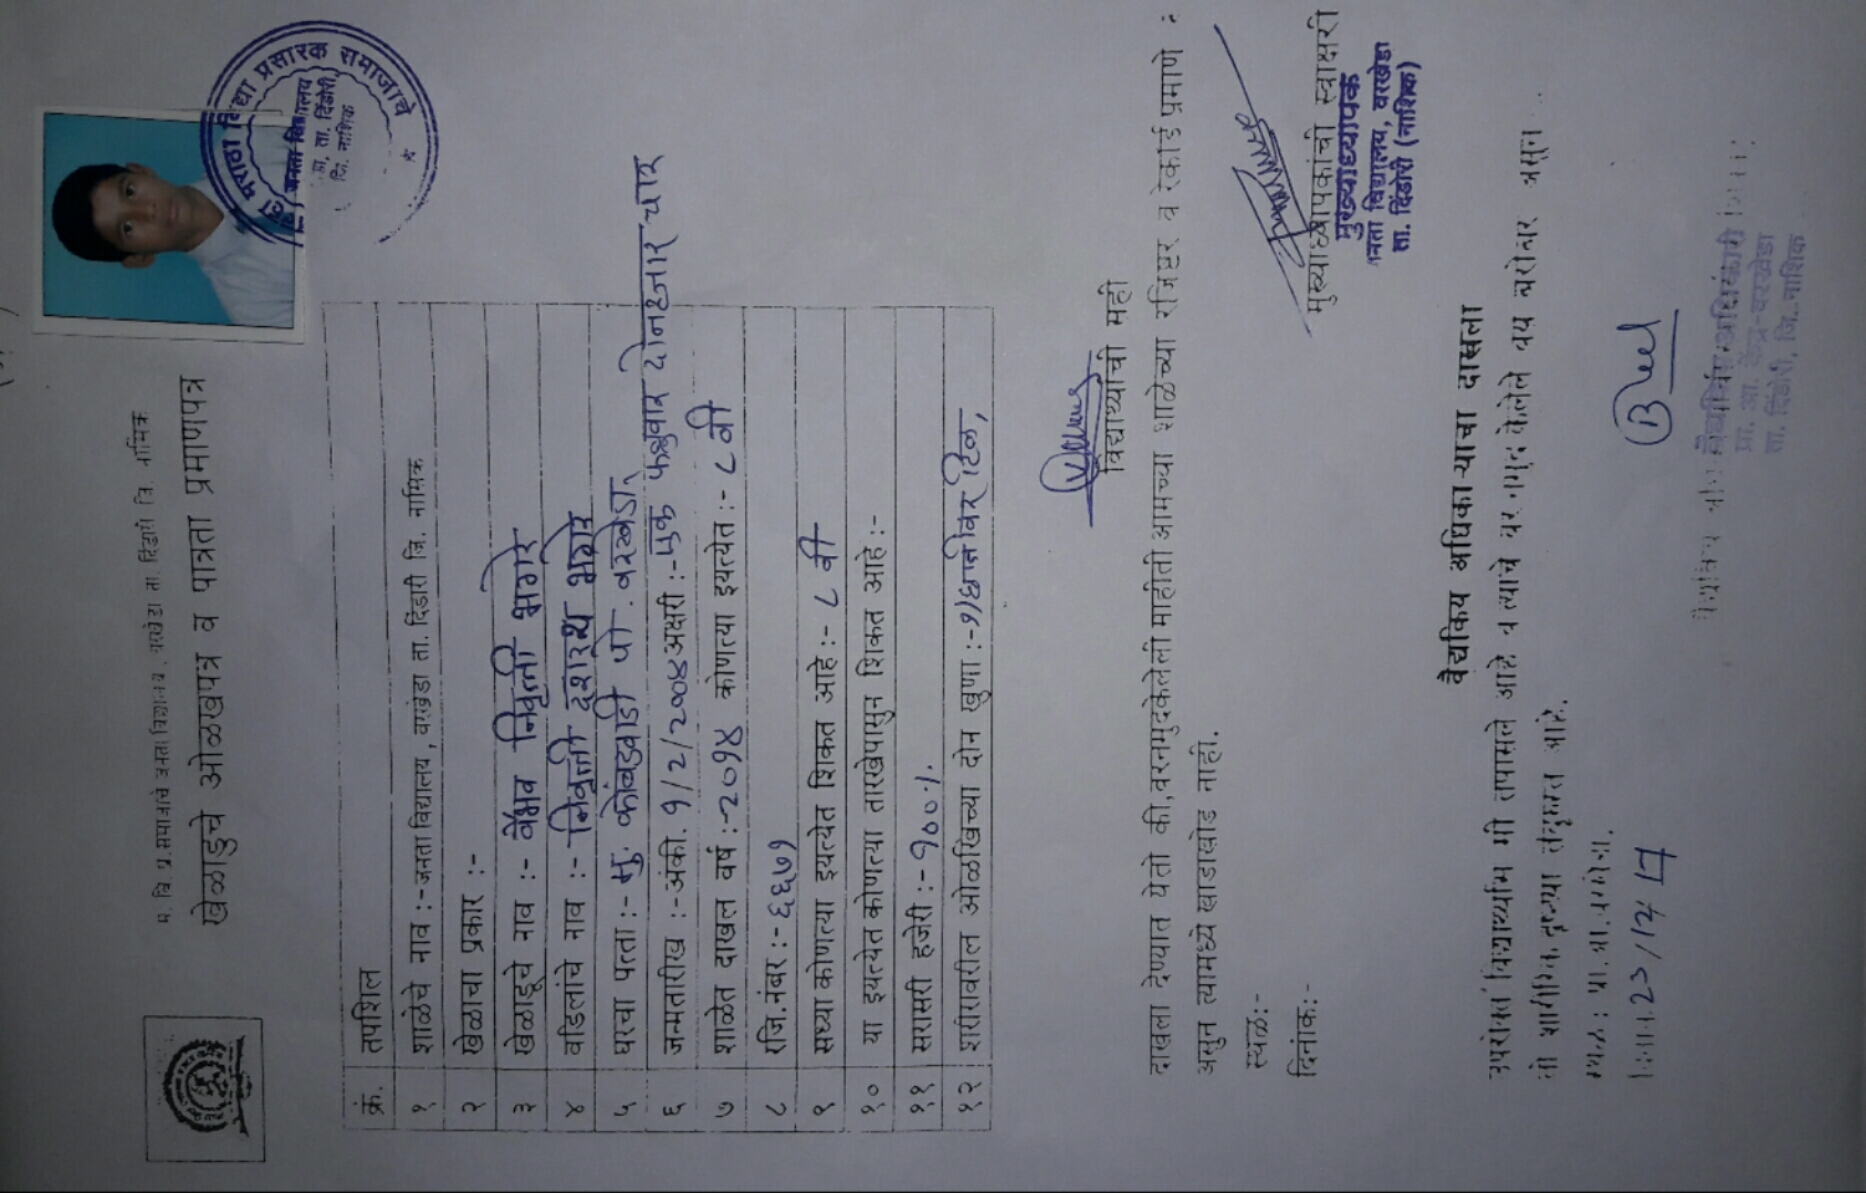 म. वि. प्र. समाजाचे जनता विद्यालय, वरखेडा ता. दिंडोरी जि. नाशिक
खेळाडुचे ओळखपत्र व पात्रता प्रमाणपत्र
मराठा विद्या प्रसारक समाजाचे
जनता विद्यालय
ता. दिंडोरी
जि. नाशिक
क्रं. तपशिल
१ शाळेचे नाव :-जनता विद्यालय, वरखेडा ता. दिंडोरी जि. नाशिक
२ खेळाचा प्रकार :-
३ खेळाडूचे नाव :- वैभव निवृत्ती भगरे
४ वडिलांचे नाव :- निवृत्ती दशरथ भगरे
५ घरचा पत्ता :- मु. कोंबडवाडी पो. वरखेडा
६ जन्मतारीख :-अंकी. १/२/२००४ अक्षरी :- एक फेब्रुवारी दोनहजार चार
७ शाळेत दाखल वर्ष :- २०१४ कोणत्या इयत्तेत :- ८ वी
८ रजि.नंबर :- ६६७१
९ सध्या कोणत्या इयत्तेत शिकत आहे :- ८ वी
१० या इयत्तेत कोणत्या तारखेपासुन शिकत आहे :-
११ सरासरी हजेरी :- १००%
१२ शरीरावरील ओळखिच्या दोन खुणा :- १)
विद्यार्थ्याची सही
दाखला देण्यात येतो की, वरनमुदकेलेली माहीती आमच्या शाळेच्या रजिष्टर व रेकॉर्ड प्रमाणे :
असुन त्यामध्ये खाडाखोड नाही.
स्थळ:-
दिनांक:-
मुख्याध्यापकांची स्वाक्षरी
मुख्याध्यापक
जनता विद्यालय, वरखेडा
ता. दिंडोरी (नाशिक)
वैद्यकिय अधिका-याचा दाखला
उपरोक्त विद्यार्थ्यास मी तपासले आहे व त्याचे वर नमुद केलेले वय बरोबर असुन
तो शारीरिक दृष्ट्या तंदुरुस्त आहे.
स्थळ : प्रा.आ.
वैद्यकिय
वैद्यकिय अधिकारी
प्रा. आ. केंद्र-वरखेडा
ता. दिंडोरी, जि. नाशिक